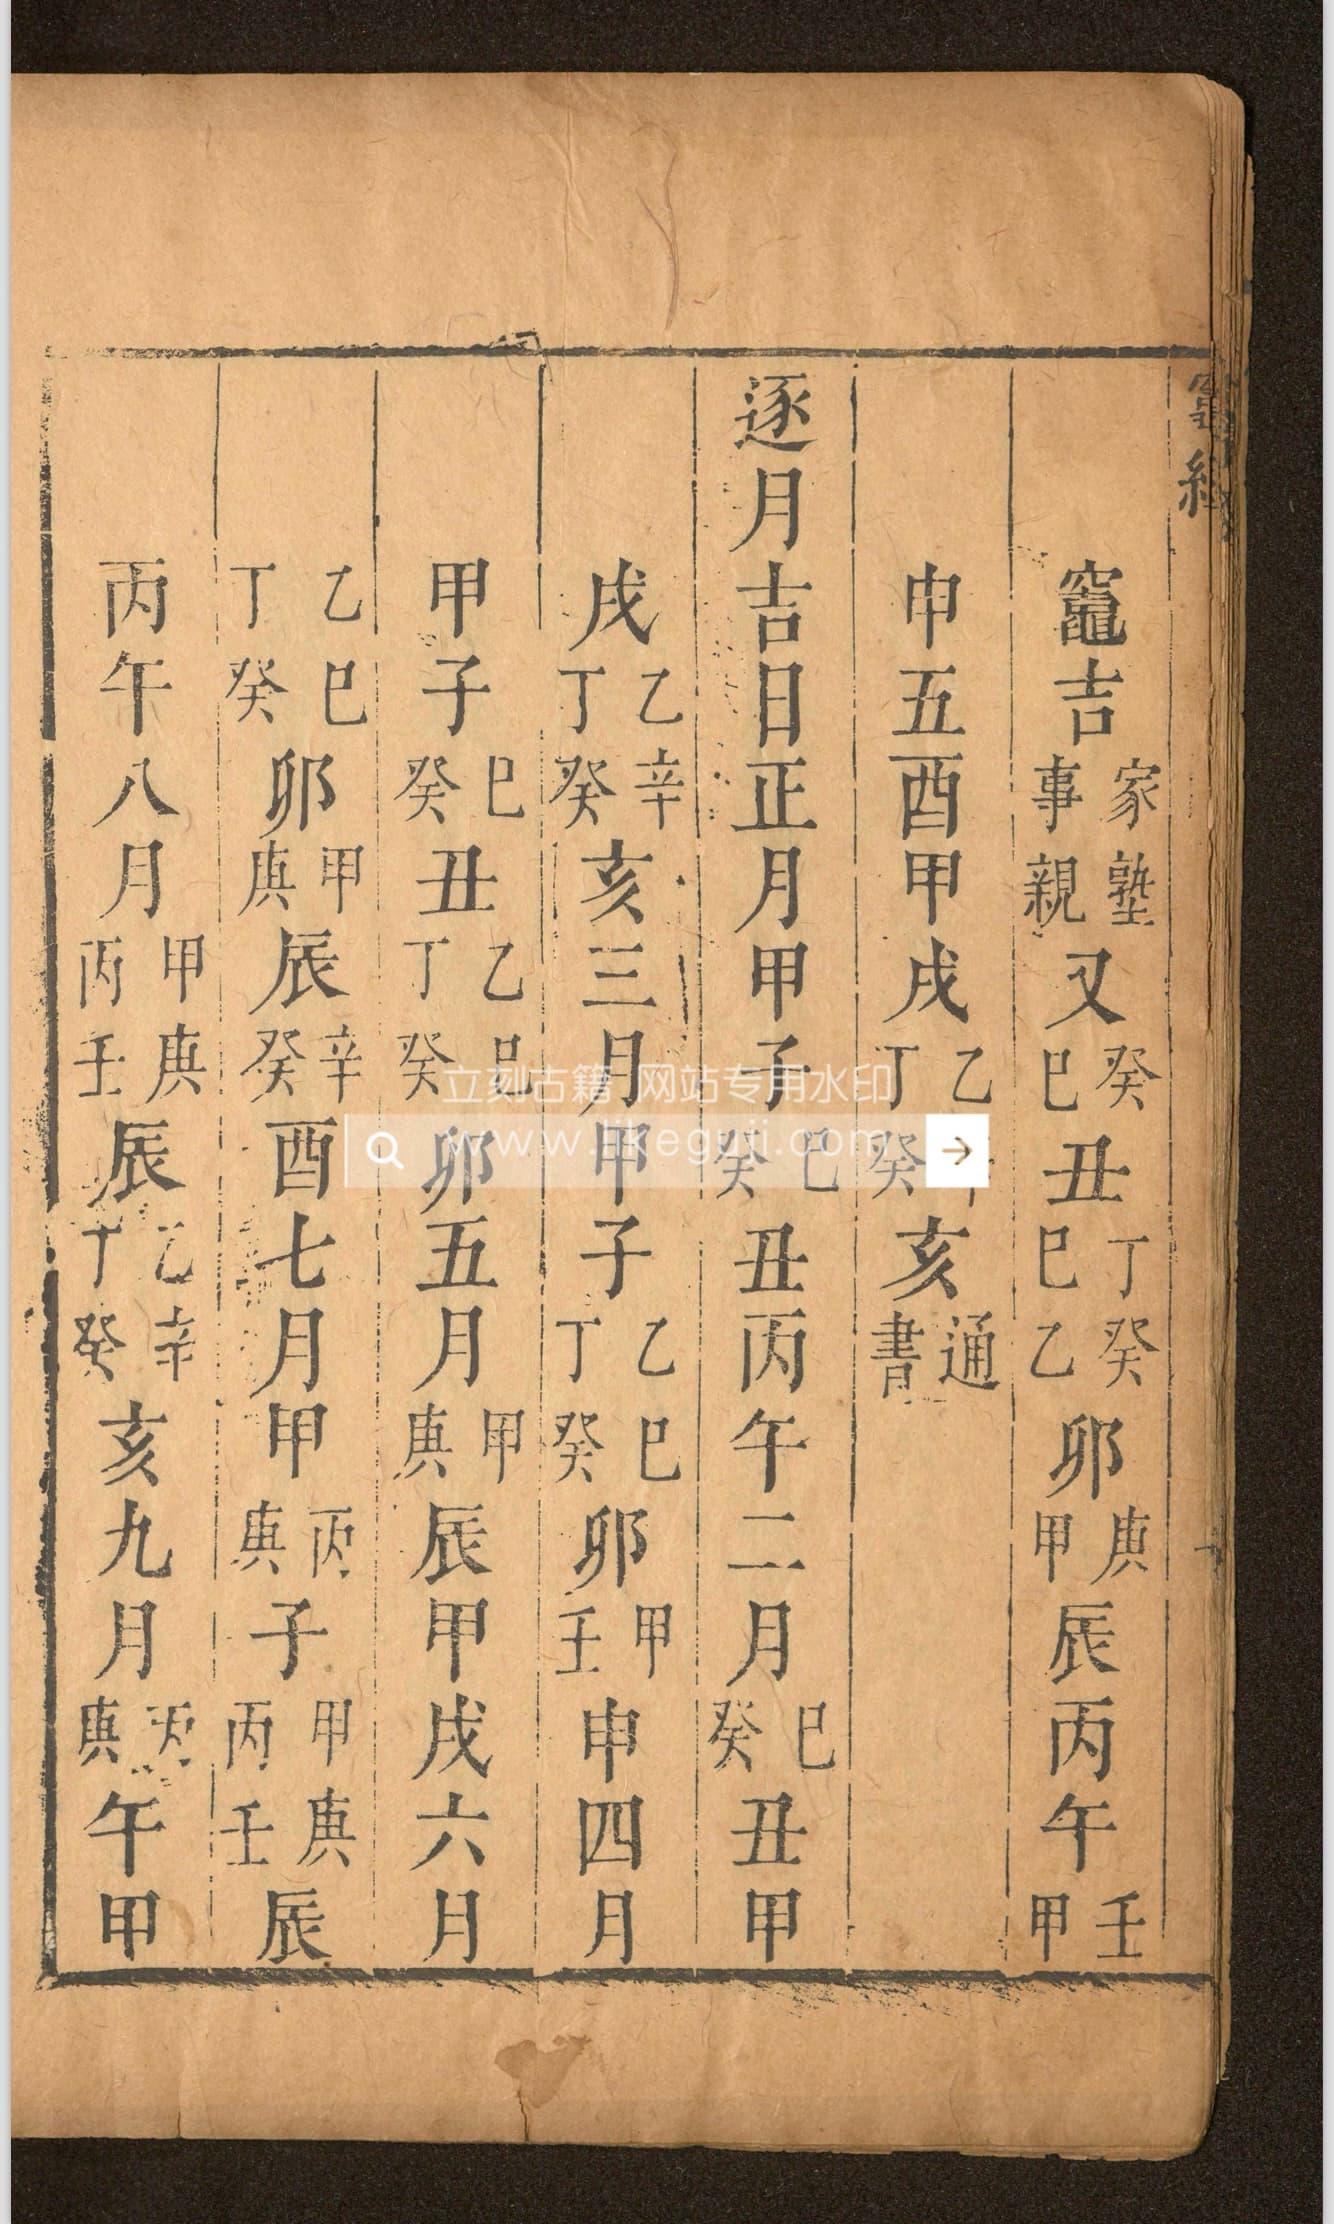 竈經
竈吉家塾事親又癸巳丑丁癸巳乙卯庚甲辰丙午壬甲
申五酉甲戌乙丁癸亥通書
逐月吉日正月甲子巳癸丑丙午二月巳癸丑甲
戌乙辛丁癸亥三月甲子乙巳丁癸卯甲壬申四月
甲子巳癸丑乙巳丁癸卯五月甲庚辰甲戌六月
乙巳丁癸卯甲庚辰辛癸酉七月甲丙庚子甲庚丙壬辰
丙午八月甲庚丙壬辰乙辛丁癸亥九月丙庚午甲
立刻古籍 网站专用水印
www.likeguji.com